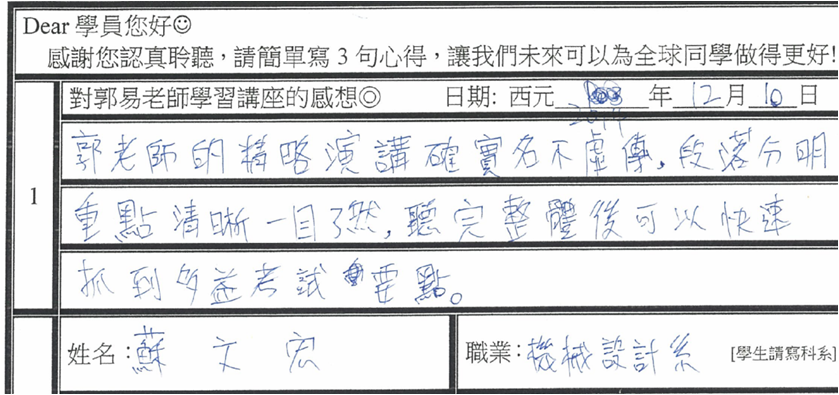 Dear 學員您好☺
感謝您認真聆聽，請簡單寫 3 句心得，讓我們未來可以為全球同學做得更好!
對郭易老師學習講座的感想◎ 日期: 西元 2014 年 12 月 10 日
1
郭老師的精略演講確實名不虛傳，段落分明
重點清晰一目了然，聽完整體後可以快速
抓到多益考試要點。
姓名：蘇文宏 職業：機械設計系 [學生請寫科系]